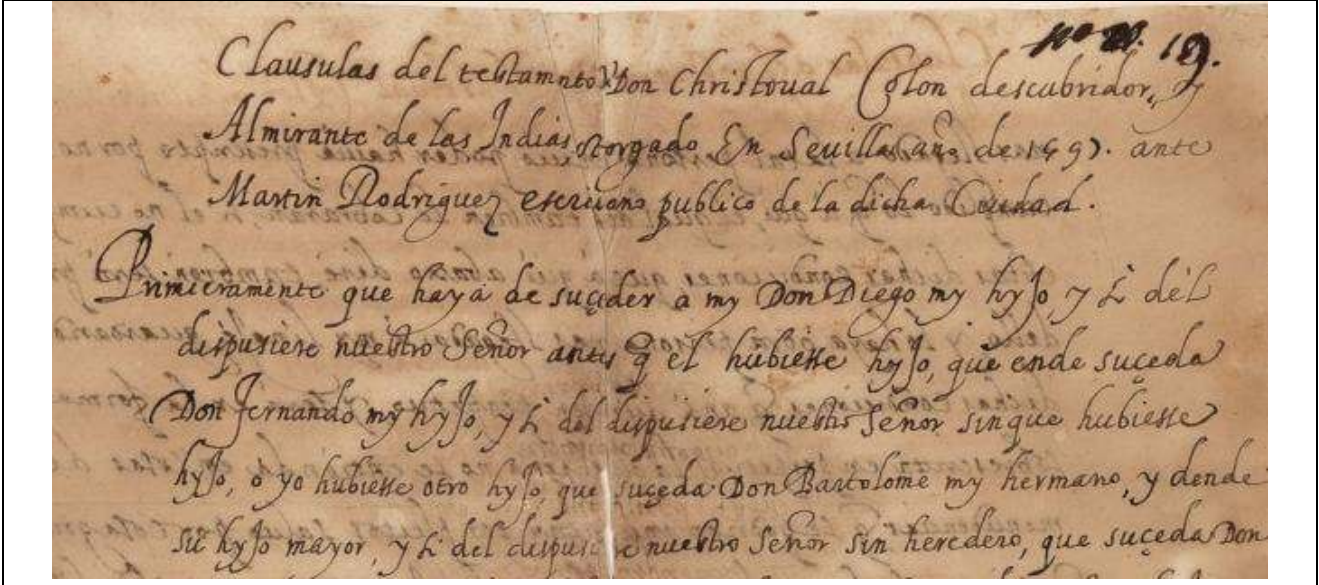 19.
Clausulas del testamnto Don Christoual Colon descubridor, y
Almirante de las Indias otorgado En Seuilla año de 1497. ante
Martin Rodriguez escriuano publico de la dicha Ciudad.
Primieramente que haya de suçeder a my Don Diego my hyjo, y si dél
dispusiere nuestro Señor antes q̃ el hubiesse hyjo, que ende suçeda
Don Fernando my hyjo, y si del dispusiere nuestro Señor sin que hubiesse
hyjo, o yo hubiesse otro hyjo, que suçeda Don Bartolome my hermano, y dende
su hyjo mayor, y si del dispusiere nuestro Señor sin heredero, que suçeda Don